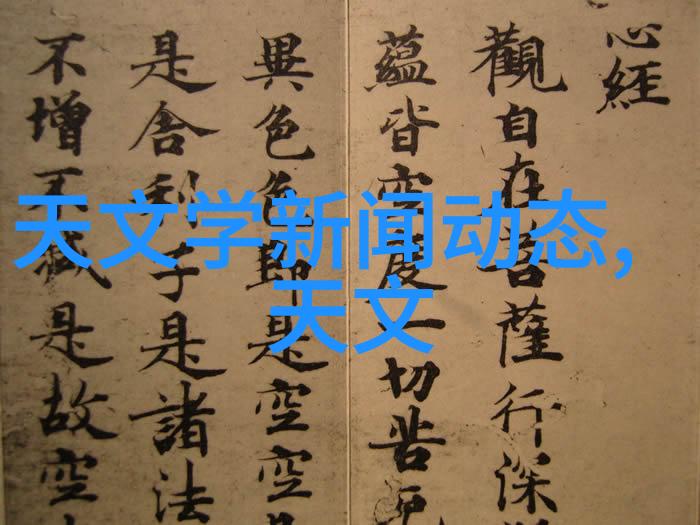 心經
觀自在菩薩行深
蘊皆空度一切苦厄
異色色即是空空
是舍利子是諸法
不增不減是故空
天文学新闻动态,
天文